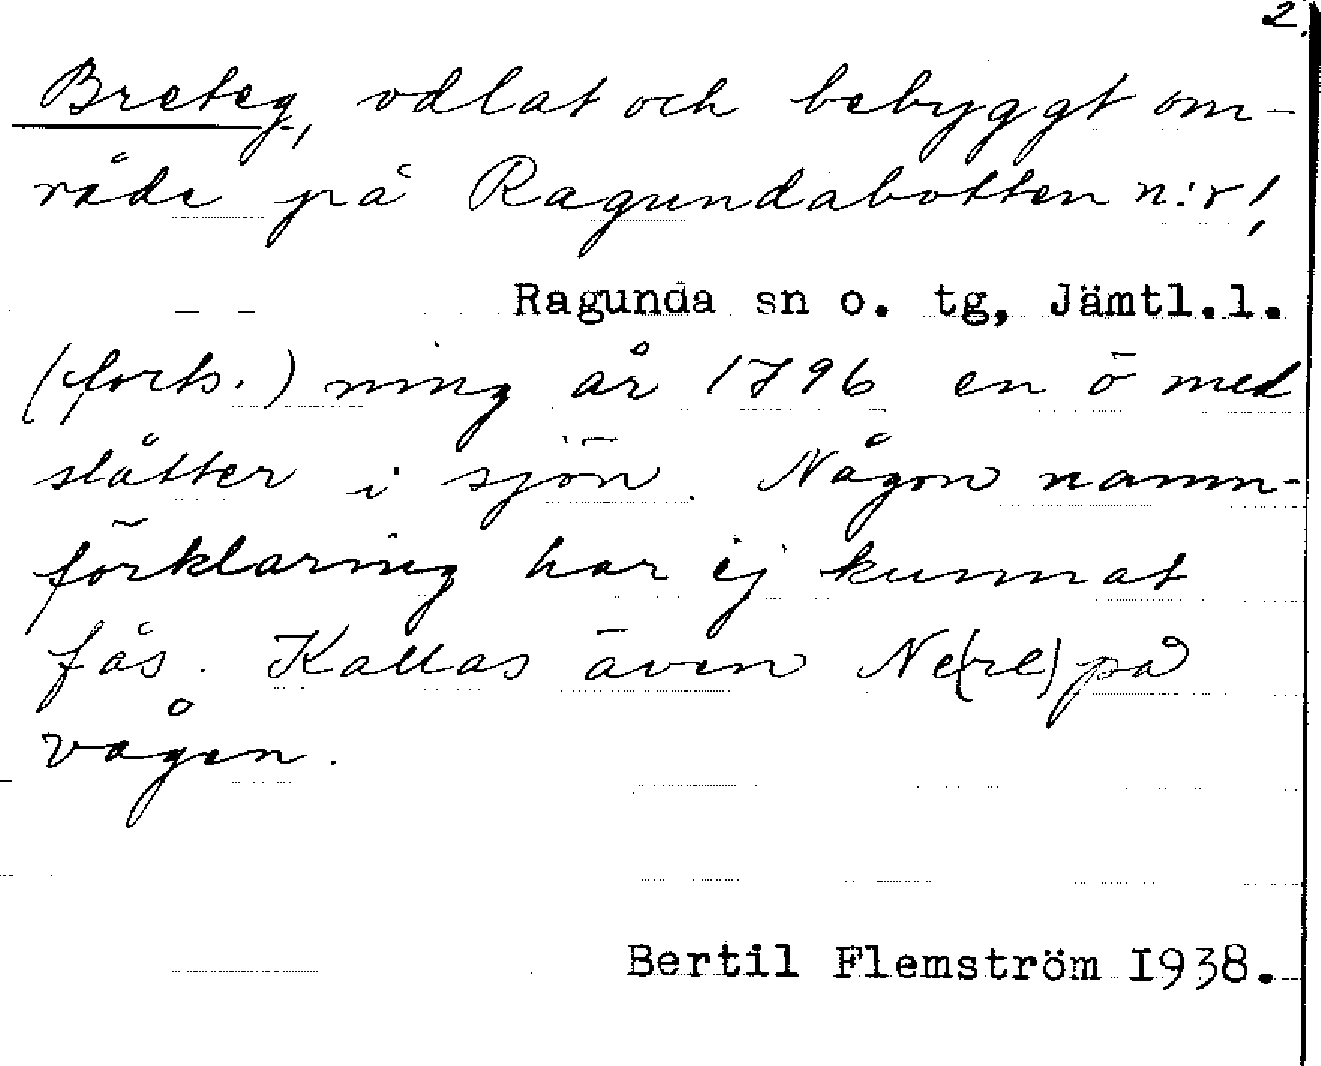 2.
Breteg, odlat och bebyggt om-
råde på Ragundabotten n:r 1,
Ragunda sn o. tg, Jämtl.l.
(forts.) ning år 1796 en ö med
slåtter i sjön. Någon namn-
förklaring har ej kunnat
fås. Kallas även Ne(re) på
vågen.
Bertil Flemström 1938.